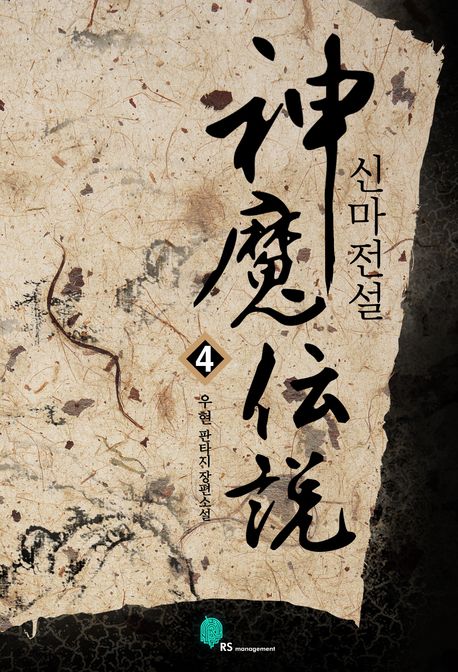 神魔伝説
신마전설
4
우현 판타지 장편소설
RS management